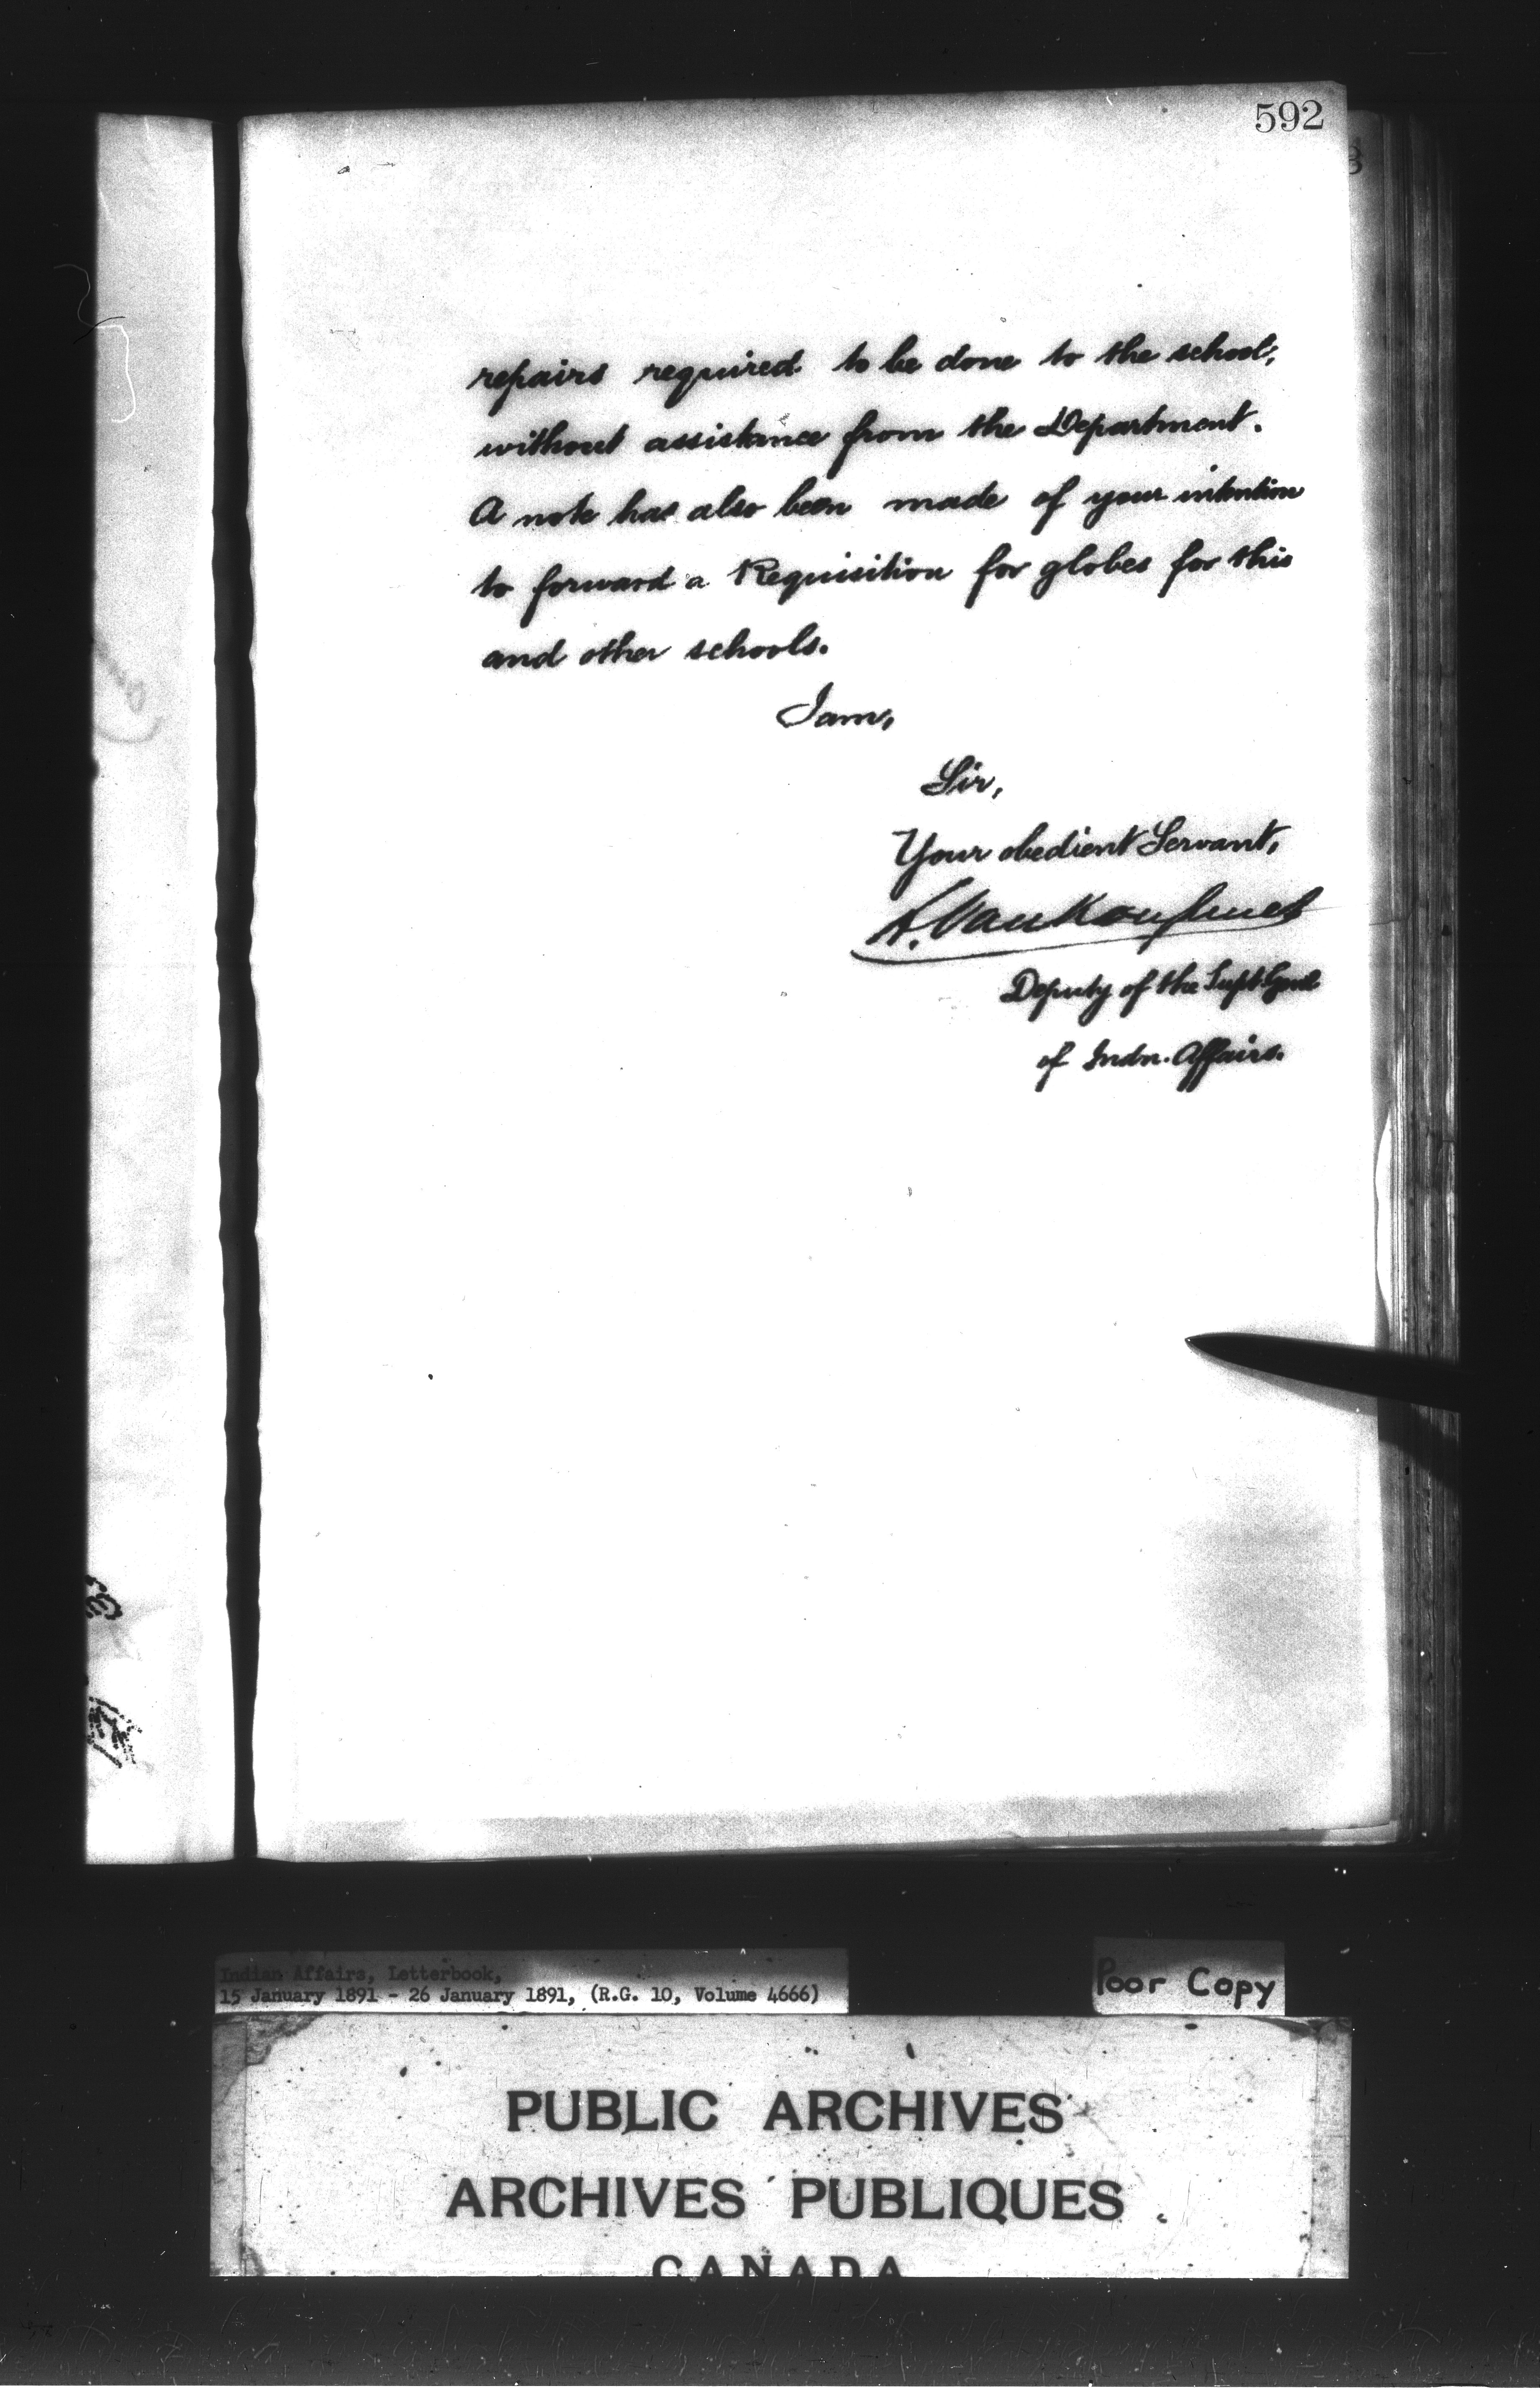 592
repairs required to be done to the school,
without assistance from the Department.
A note has also been made of your intention
to forward a Requisition for globes for this
and other schools.
I am,
Sir,
Your obedient Servant,
L. VanKoughnet
Deputy of the Supt. Genl
of Indn. Affairs.
Indian Affairs, Letterbook,
15 January 1891 - 26 January 1891, (R.G. 10, Volume 4666)
Poor Copy
PUBLIC ARCHIVES
ARCHIVES PUBLIQUES
CANADA